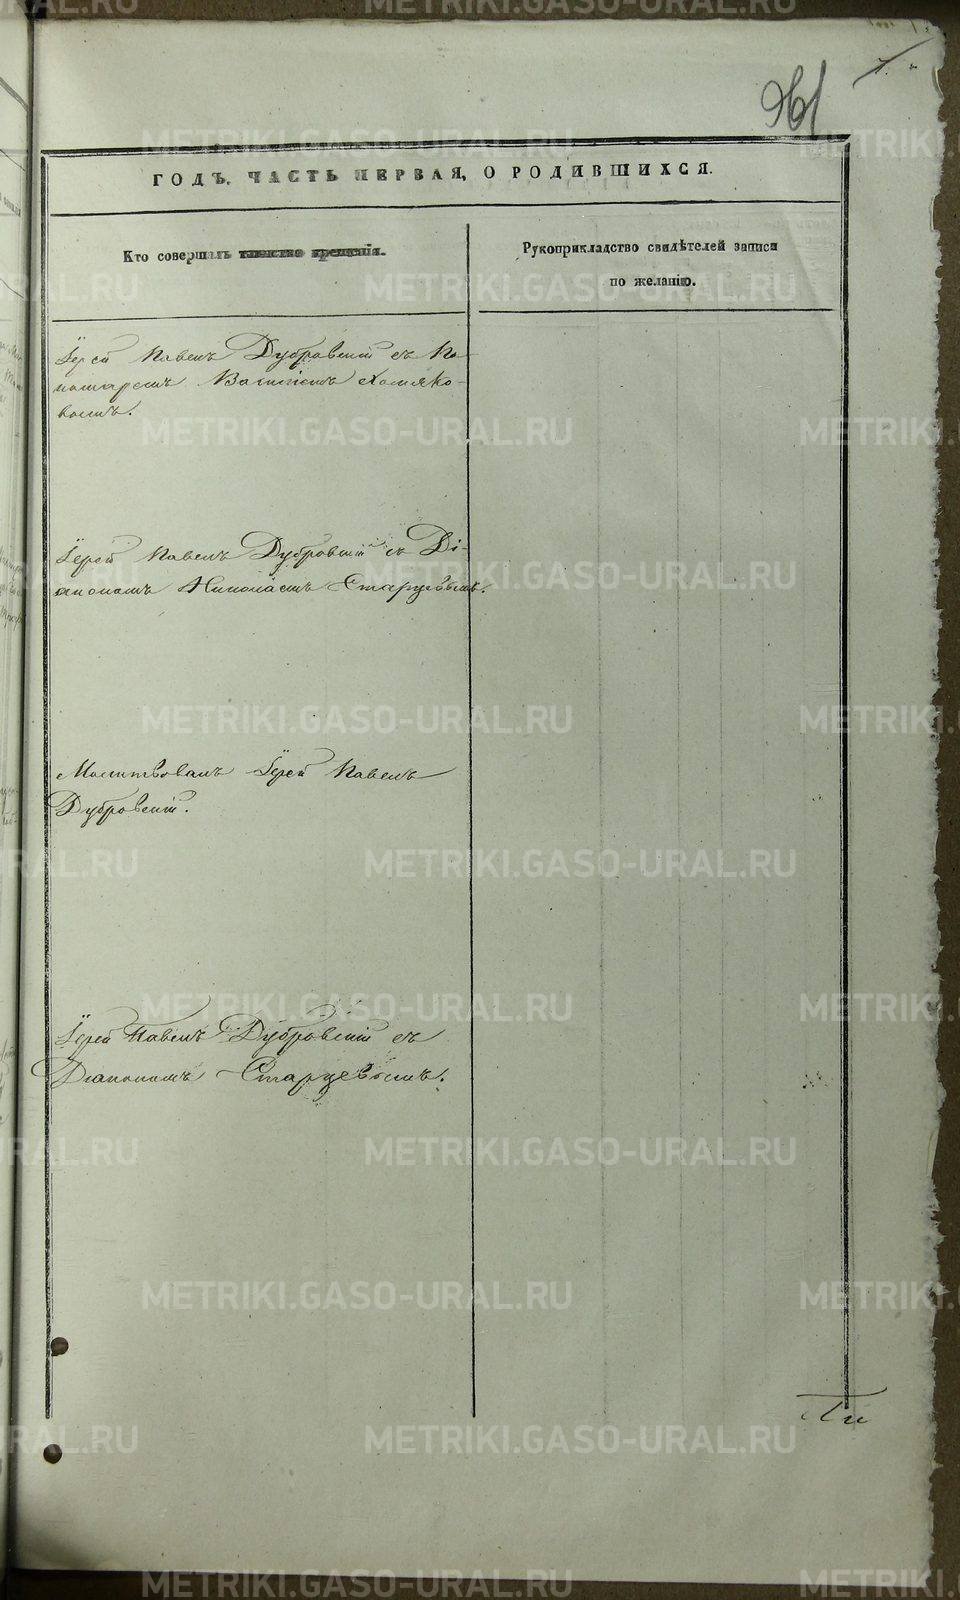 961
ГОДЪ, ЧАСТЬ ПЕРВАЯ, О РОДИВШИХСЯ.
Кто совершалъ таинство крещенія.
Рукоприкладство свидѣтелей записи
по желанію.
Іерей Павелъ Дубровскій съ По-
номаремъ Василіемъ Хомяко-
вымъ.
Іерей Павелъ Дубровскій съ Ді-
акономъ Николаемъ Старцевымъ.
Молитвовалъ Іерей Павелъ
Дубровскій.
Іерей Павелъ Дубровскій съ
Діакономъ Старцевымъ.
METRIKI.GASO-URAL.RU